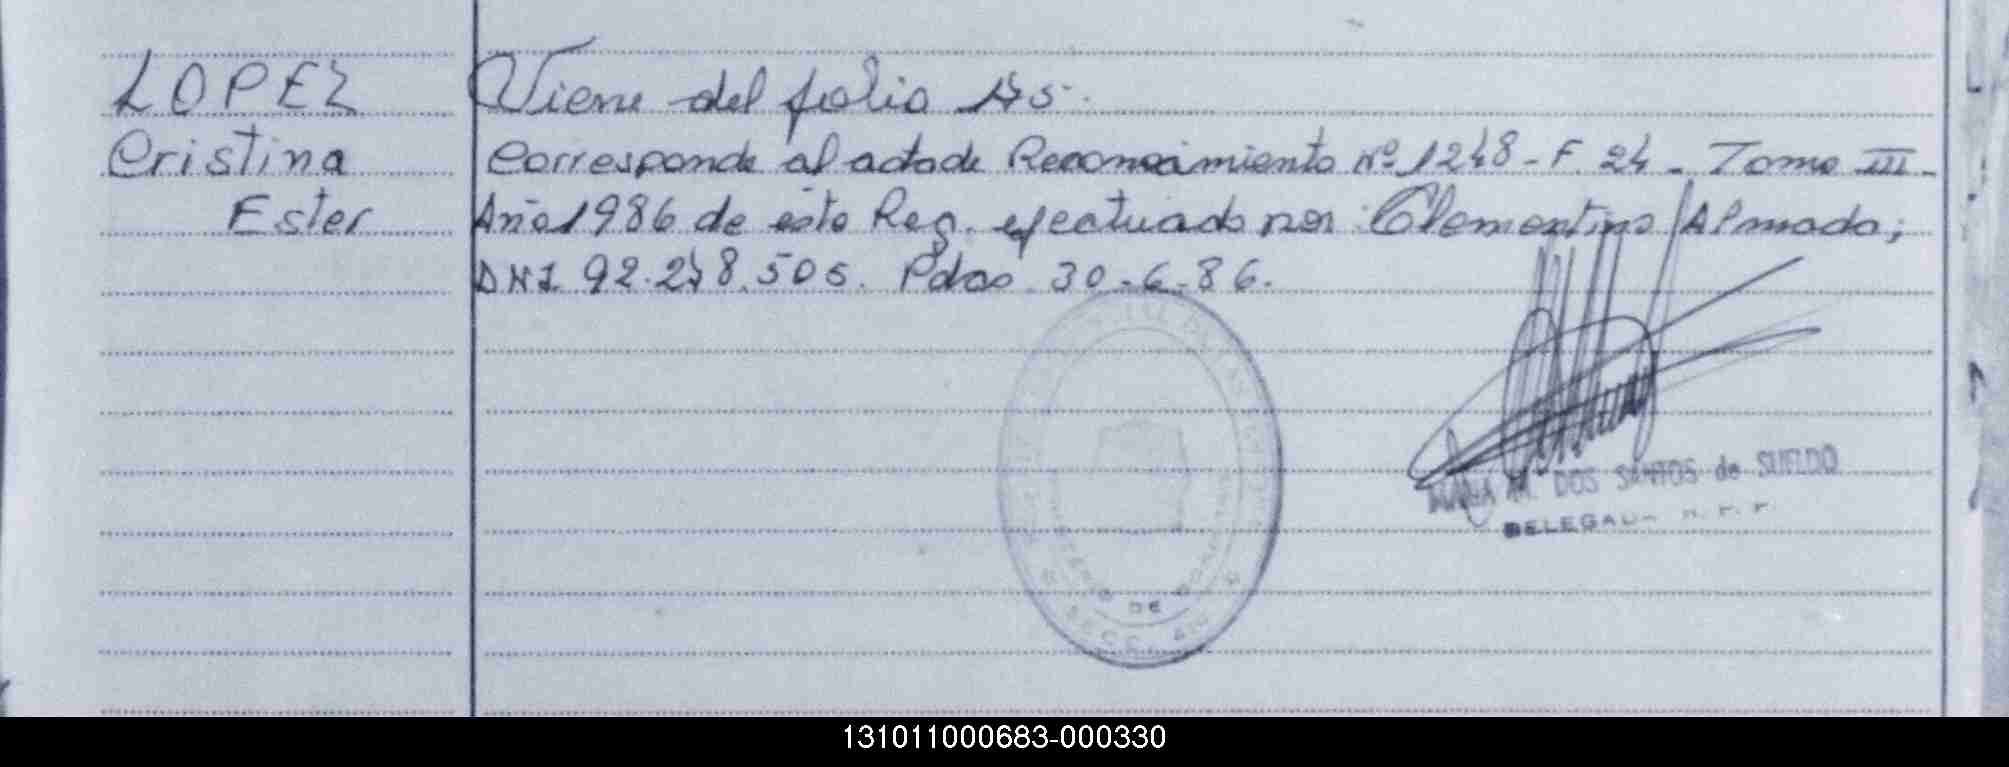 LOPEZ
Cristina
Ester
Viene del folio 175.
Corresponde al acta de Reconocimiento Nº 1248 - F. 24 - Tomo III -
Año 1986 de este Reg. efectuado por Clementino Almada;
DNI 92.278.505. Pdas 30-6-86.
MARIA M. DOS SANTOS de SUELDO
DELEGADA R. P. P.
DE
131011000683-000330